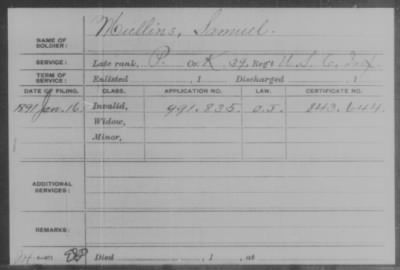 NAME OF SOLDIER: Mullins, Samuel.
SERVICE: Late rank, P. Co. K, 39, Reg't U. S. C. Inf.
TERM OF SERVICE: Enlisted , 1 Discharged , 1
DATE OF FILING. CLASS. APPLICATION NO. LAW. CERTIFICATE NO.
1891 Jan. 16. Invalid, 991.835 O.S. 843.644
Widow,
Minor,
ADDITIONAL SERVICES:
REMARKS:
Died , 1 , at